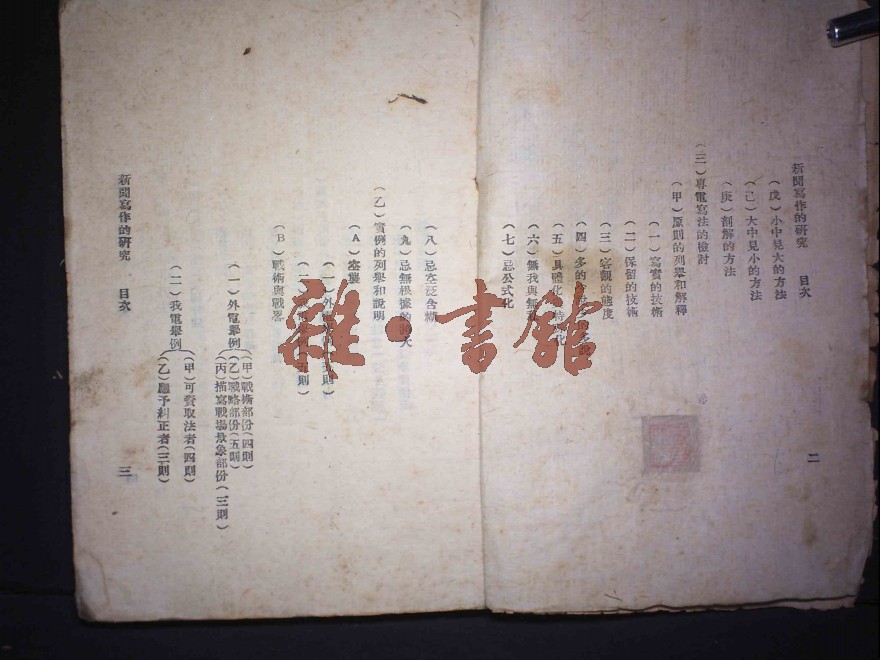 新聞寫作的研究 目次
二
(戊)小中見大的方法
(己)大中見小的方法
(庚)剖解的方法
(三)專電寫法的檢討
(甲)原則的列舉和解釋
(一)寫實的技術
(二)保留的技術
(三)客觀的態度
(四)多的
(五)具體化 特
(六)無我與無
(七)忌公式化
(八)忌空泛含糊
(九)忌無根據的 大
(乙)實例的列舉和說明
(A)空襲
(一)外 則)
(二) 五則)
(B)戰術與戰畧
(一)外電舉例
(甲)戰術部份(四則)
(乙)戰略部份(五則)
(丙)描寫戰場景象部份(三則)
(二)我電舉例
(甲)可資取法者(四則)
(乙)應予糾正者(三則)
新聞寫作的研究 目次
三
雜·書館